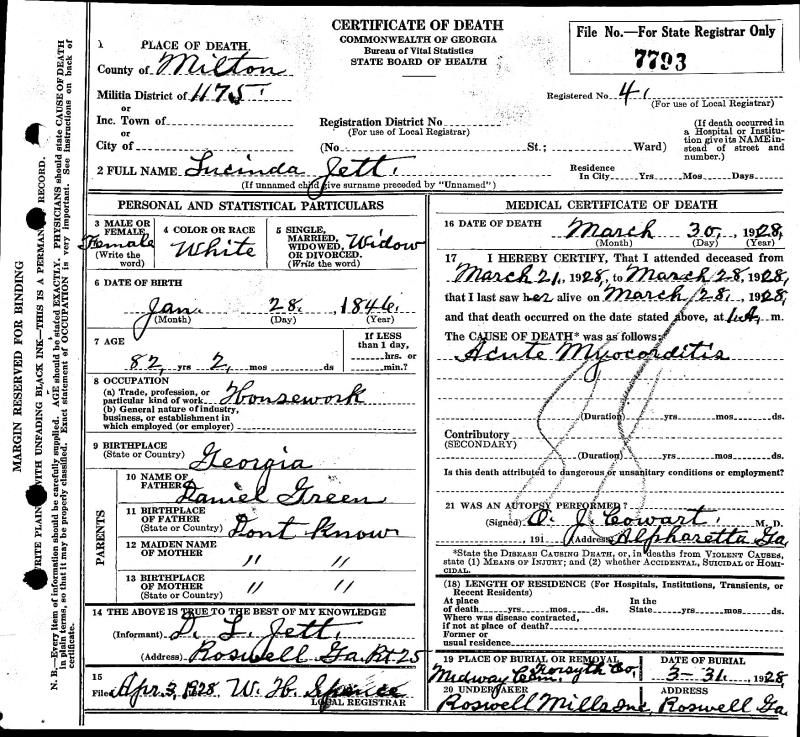 CERTIFICATE OF DEATH
COMMONWEALTH OF GEORGIA
Bureau of Vital Statistics
STATE BOARD OF HEALTH
File No.—For State Registrar Only
7793
1 PLACE OF DEATH
County of Milton
Militia District of 1175
or
Inc. Town of
or
City of
Registration District No
(For use of Local Registrar)
(No St.; Ward)
Registered No 41
(For use of Local Registrar)
(If death occurred in
a Hospital or Institu-
tion give its NAME in-
stead of street and
number.)
2 FULL NAME Lucinda Jett.
(If unnamed child give surname preceded by "Unnamed")
Residence
In City Yrs Mos Days
PERSONAL AND STATISTICAL PARTICULARS
3 MALE OR
FEMALE,
Female
(Write the
word)
4 COLOR OR RACE
White
5 SINGLE,
MARRIED,
WIDOWED,
OR DIVORCED.
(Write the word)
Widow
6 DATE OF BIRTH
Jan. 28. 1846.
(Month) (Day) (Year)
7 AGE
82 yrs 2 mos ds
If LESS
than 1 day,
hrs. or
min.?
8 OCCUPATION
(a) Trade, profession, or
particular kind of work Housework
(b) General nature of industry,
business, or establishment in
which employed (or employer)
9 BIRTHPLACE
(State or Country) Georgia
PARENTS
10 NAME OF
FATHER Daniel Green
11 BIRTHPLACE
OF FATHER
(State or Country) Dont Know
12 MAIDEN NAME
OF MOTHER " "
13 BIRTHPLACE
OF MOTHER
(State or Country) " "
14 THE ABOVE IS TRUE TO THE BEST OF MY KNOWLEDGE
(Informant) D. L. Jett.
(Address) Roswell Ga. Rt 25
15
Filed Apr. 3, 1928 W. H. Spence
LOCAL REGISTRAR
MEDICAL CERTIFICATE OF DEATH
16 DATE OF DEATH March 30, 1928,
(Month) (Day) (Year)
17 I HEREBY CERTIFY, That I attended deceased from
March 21, 1928, to March 28, 1928,
that I last saw her alive on March 28. 1928,
and that death occurred on the date stated above, at 1 A. m.
The CAUSE OF DEATH* was as follows:
Acute Myocorditis
(Duration) yrs mos ds.
Contributory
(SECONDARY)
(Duration) yrs mos ds.
Is this death attributed to dangerous or unsanitary conditions or employment?
21 WAS AN AUTOPSY PERFORMED?
(Signed) O. J. Cowart. M. D.
, 191 (Address) Alpharetta Ga
*State the DISEASE CAUSING DEATH, or, in deaths from VIOLENT CAUSES,
state (1) MEANS OF INJURY; and (2) whether ACCIDENTAL, SUICIDAL OR HOMI-
CIDAL.
(18) LENGTH OF RESIDENCE (For Hospitals, Institutions, Transients, or
Recent Residents)
At place
of death yrs mos ds.
In the
State yrs mos ds.
Where was disease contracted,
if not at place of death?
Former or
usual residence
19 PLACE OF BURIAL OR REMOVAL
Midway Cem. Forsyth Co.
DATE OF BURIAL
3-31. 1928,
20 UNDERTAKER
Roswell Mills Inc,
ADDRESS
Roswell Ga.
MARGIN RESERVED FOR BINDING
WRITE PLAINLY WITH UNFADING BLACK INK—THIS IS A PERMANENT RECORD.
N. B.—Every item of information should be carefully supplied. AGE should be stated EXACTLY. PHYSICIANS should state CAUSE OF DEATH
in plain terms, so that it may be properly classified. Exact statement of OCCUPATION is very important. See instructions on back of
certificate.